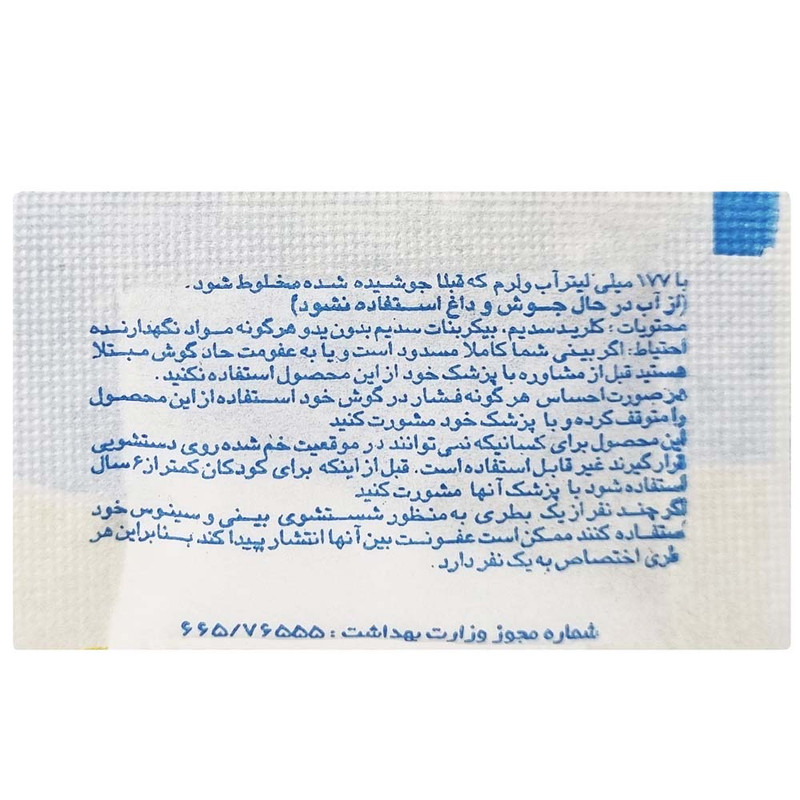 با ۱۷۷ میلی لیتر آب ولرم که قبلا جوشیده شده مخلوط شود.
(از آب در حال جوش و داغ استفاده نشود)
محتویات : کلرید سدیم، بیکربنات سدیم بدون ید و هرگونه مواد نگهدارنده
احتیاط: اگر بینی شما کاملا مسدود است و یا به عفونت حاد گوش مبتلا
هستید قبل از مشاوره با پزشک خود از این محصول استفاده نکنید.
در صورت احساس هرگونه فشار در گوش خود استفاده از این محصول
را متوقف کرده و با پزشک خود مشورت کنید
این محصول برای کسانیکه نمی توانند در موقعیت خم شده روی دستشویی
قرار گیرند غیر قابل استفاده است. قبل از اینکه برای کودکان کمتر از ۶ سال
استفاده شود با پزشک آنها مشورت کنید
اگر چند نفر از یک بطری به منظور شستشوی بینی و سینوس خود
استفاده کنند ممکن است عفونت بین آنها انتشار پیدا کند بنابراین هر
بطری اختصاص به یک نفر دارد.
شماره مجوز وزارت بهداشت : ۶۶۵/۷۶۵۵۵